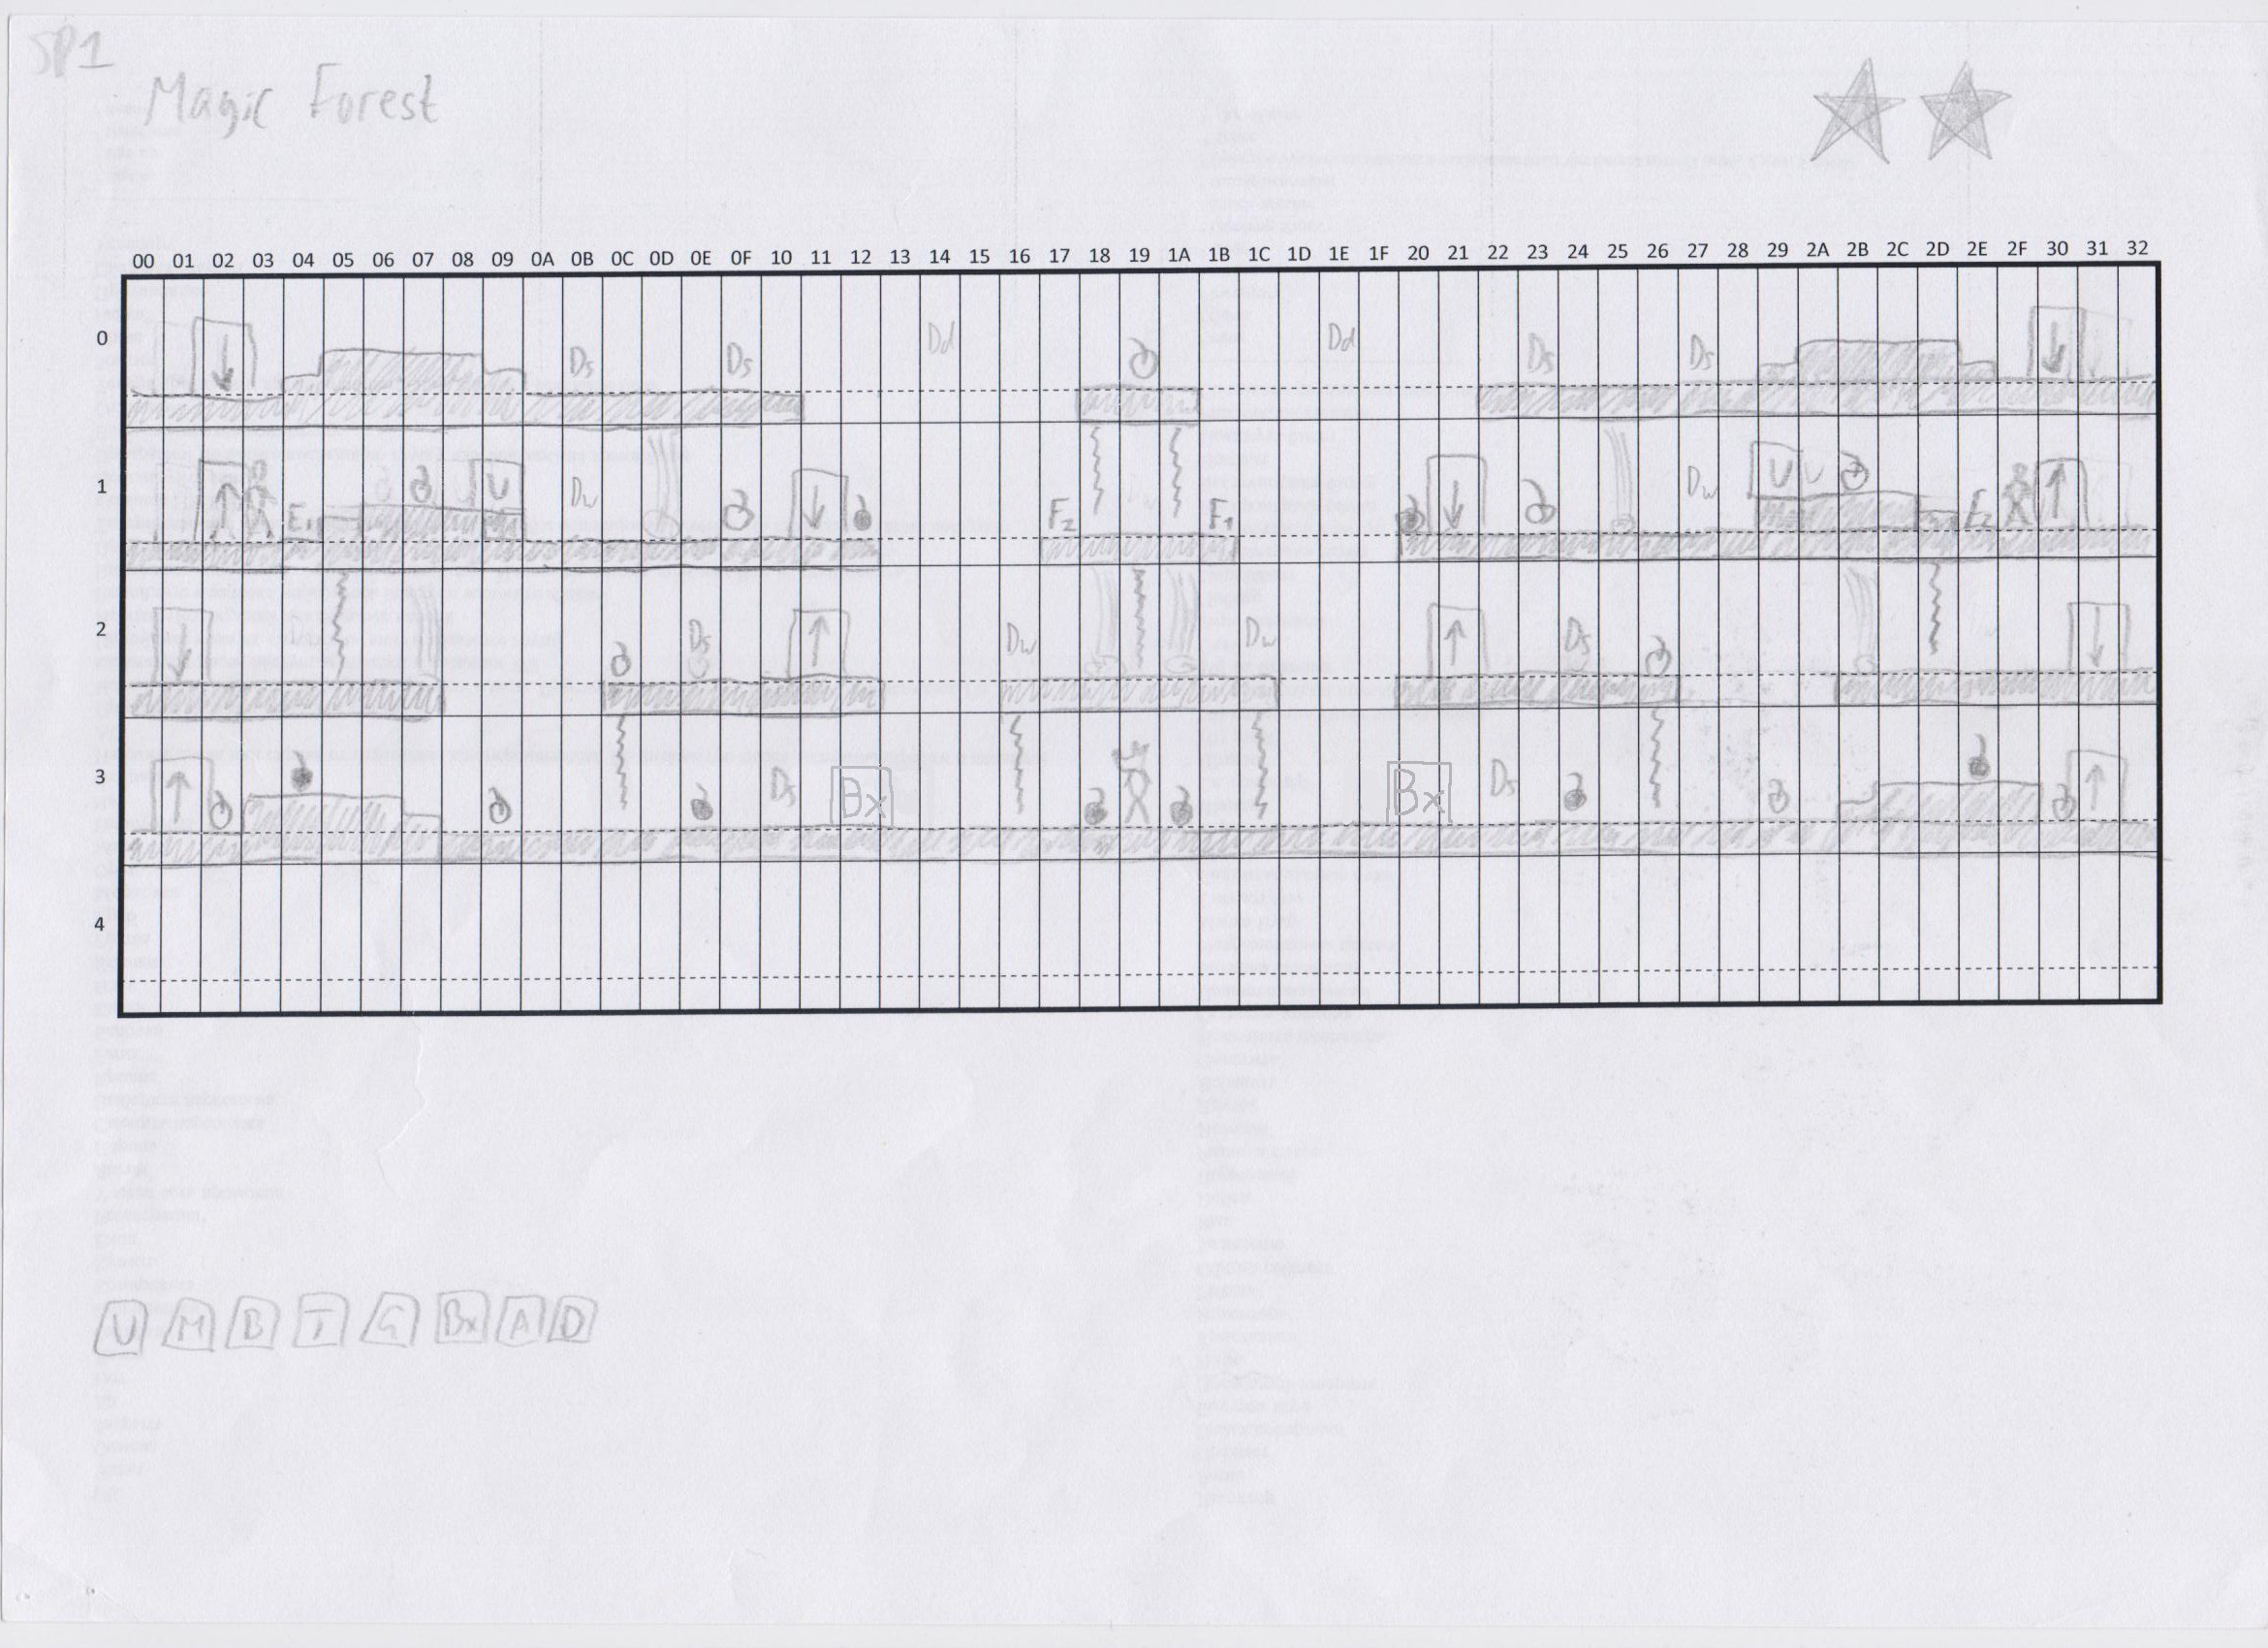 SP1
Magic Forest
00 01 02 03 04 05 06 07 08 09 0A 0B 0C 0D 0E 0F 10 11 12 13 14 15 16 17 18 19 1A 1B 1C 1D 1E 1F 20 21 22 23 24 25 26 27 28 29 2A 2B 2C 2D 2E 2F 30 31 32
0 ↓ Ds Ds Dd Dd Ds Ds ↓
1 ↑ E1 U Dw ↓ F2 F1 ↓ Dw U U E2 ↑
2 ↓ Ds ↑ Dw Dw ↑ Ds ↓
3 ↑ Ds Bx Bx Ds ↑
4
U M B T G Bx A D